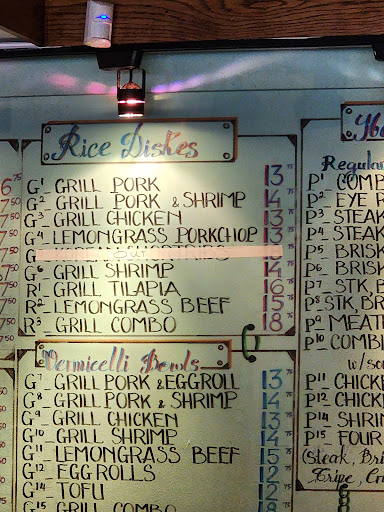 Rice Dishes
G1 GRILL PORK 13 75
G2 GRILL PORK & SHRIMP 14 75
G3 GRILL CHICKEN 13 75
G4 LEMONGRASS PORKCHOP 13 75
OUT
G6 GRILL SHRIMP 14 75
R1 GRILL TILAPIA 16 75
R2 LEMONGRASS BEEF 15 75
R3 GRILL COMBO 18 75
Vermicelli Bowls
G7 GRILL PORK & EGGROLL 13 75
G8 GRILL PORK & SHRIMP 14 75
G9 GRILL CHICKEN 13
G10 GRILL SHRIMP 14
G11 LEMONGRASS BEEF 15 75
G12 EGG ROLLS 12
G14 TOFU 12
G15 GRILL COMBO 18
6 75
7 50
7 50
7 50
7 50
7 50
7 50
Regular
P1 COMB
P2 EYE R
P3 STEAK
P4 STEAK
P5 BRISK
P6 BRISK
P7 STK, B
P8 STK, BR
P9 MEAT
P10 COMBI
w/so
P11 CHICK
P12 CHICK
P14 SHRI
P15 FOUR
(Steak, Bri
Tripe, Cr